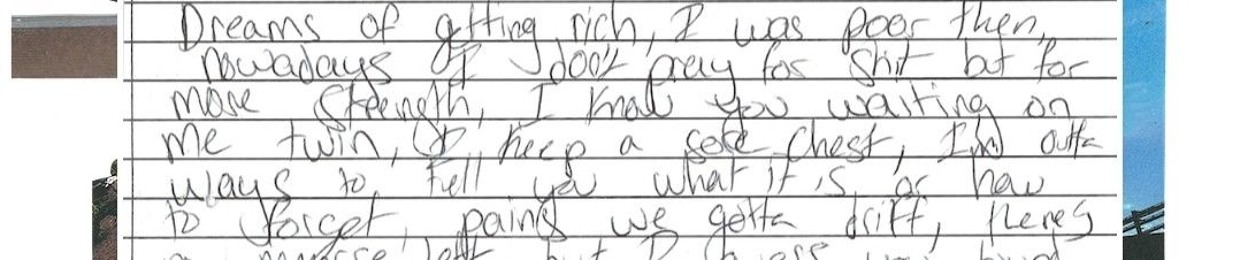 Dreams of getting rich, I was poor then,
nowadays I don't pray for shit but for
more strength, I know you waiting on
me twin, I keep a sore chest, I'm outta
ways to tell you what it is or how
to forget, pains we gotta drift, there's
left but I